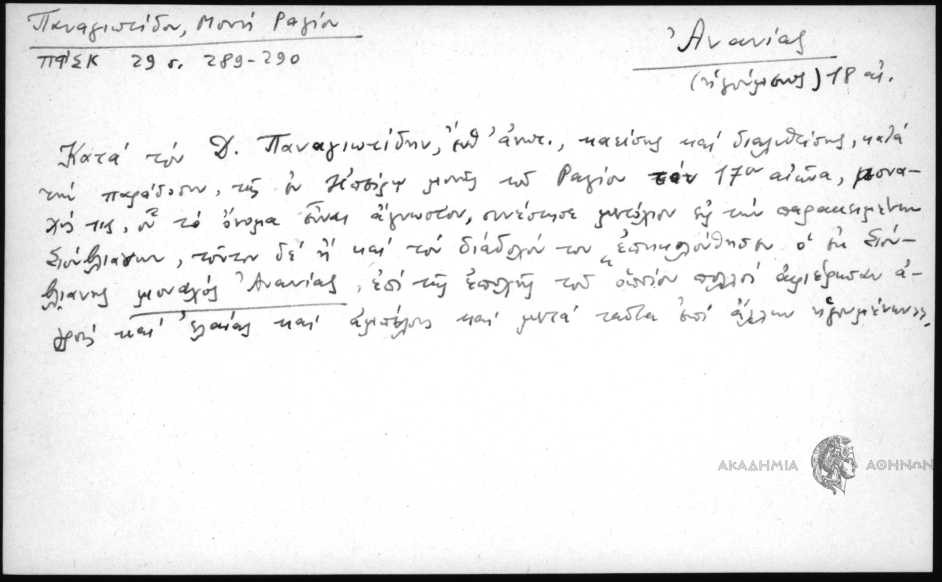 Παναγιωτίδου, Μονή Ραγίου
ΠΦΣΚ 29 σ. 289-290
Ἀνανίας
(ἡγούμενος) 18 αἰ.
Κατά τόν Δ. Παναγιωτίδην, ἔνθ' ἀνωτ., καείσης καί διαλυθείσης, κατά
τήν παράδοσιν, τῆς ἐν Ἠπείρῳ μονῆς τοῦ Ραγίου τόν 17ον αἰῶνα, μονα-
χός τις, οὗ τό ὄνομα εἶναι ἄγνωστον, συνέστησε μετόχιον εἰς τήν παρακειμένην
τοῦτον δέ ἤ καί τόν διάδοχόν του "ἐπηκολούθησεν ὁ ἐκ
μοναχός Ἀνανίας, ἐπί τῆς ἐποχῆς τοῦ ὁποίου πολλοί ἀφιέρωσαν ἀ-
γρούς καί ἐλαίας καί ἀμπέλους καί μετά ταῦτα ἐπί ἄλλων ἡγουμένων».
ΑΚΑΔΗΜΙΑ ΑΘΗΝΩΝ